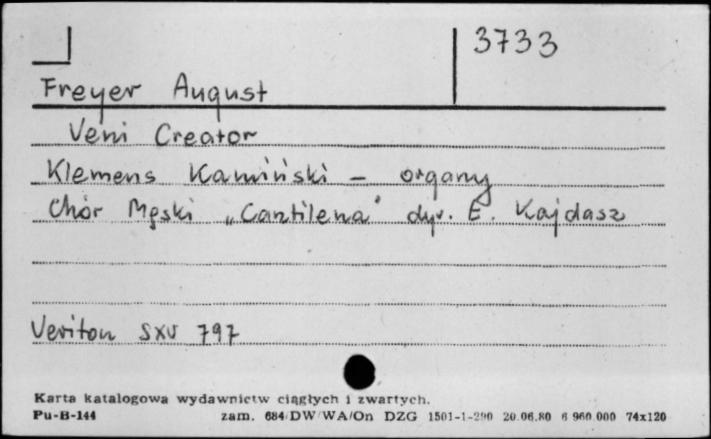 3733
Freyer August
Veni Creator
Klemens Kamiński – organy
Chór Męski „Cantilena" dyr. E. Kajdasz
Veriton SXV 797
Karta katalogowa wydawnictw ciągłych i zwartych.
Pu-B-144 zam. 684/DW/WA/On DZG 1501-1-290 20.06.80 6 960 000 74x120